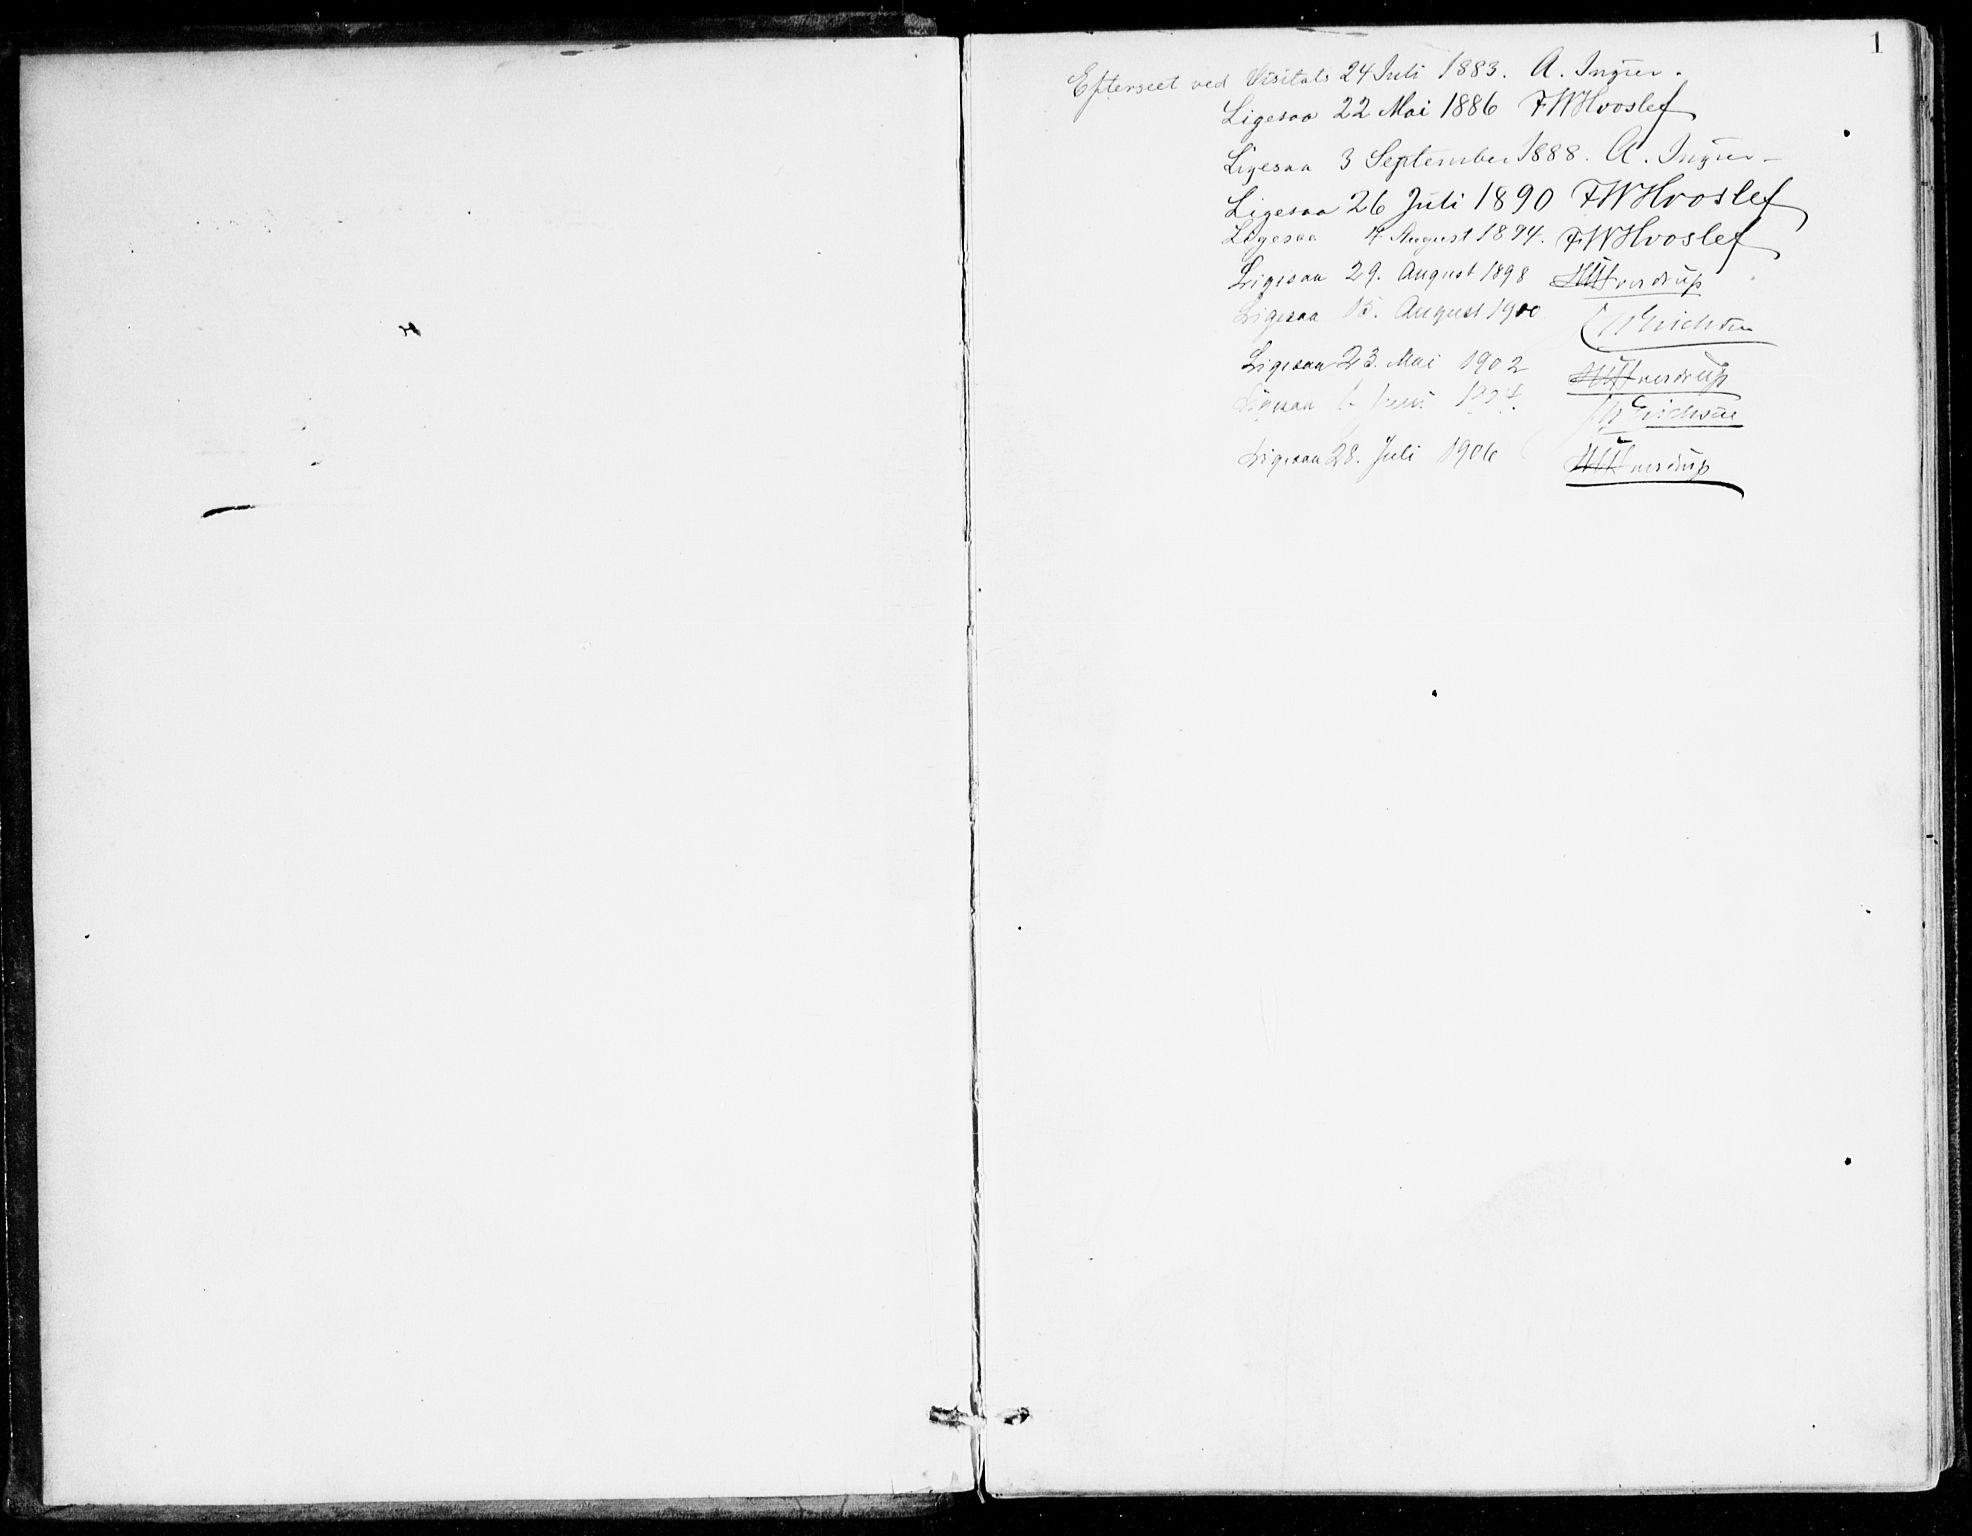 1
Efterseet ved Visitats 24 Juli 1883. A. Ingier.
Ligesaa 22 Mai 1886 FWHvoslef
Ligesaa 3 September 1888. A. Ingier
Ligesaa 26 Juli 1890 FWHvoslef
Ligesaa 4 August 1894. FWHvoslef
Ligesaa 29. August 1898 Sverdrup
Ligesaa 15. August 1900 Erichsen
Ligesaa 23. Mai 1902 Sverdrup
Ligesaa Juni 1904. Erichsen
Ligesaa 28. Juli 1906 Sverdrup